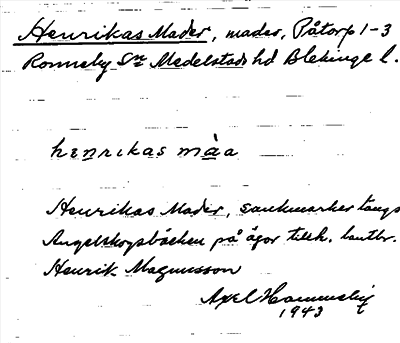 Henrikas Mader, mader, Påtorp 1-3
Ronneby Sn Medelstads hd Blekinge l.
henrikas màa
Henrikas Mader, sankmarker längs
Angelskogsbäcken på ägor tillh. lantbr.
Henrik Magnusson
Axel Hammelig
1943